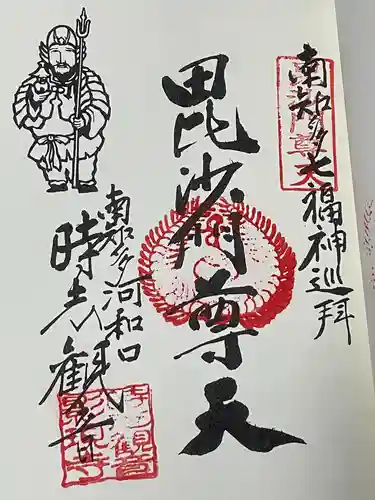 南知多七福神巡拝
毘沙門尊天
南知多河和口
時志観音